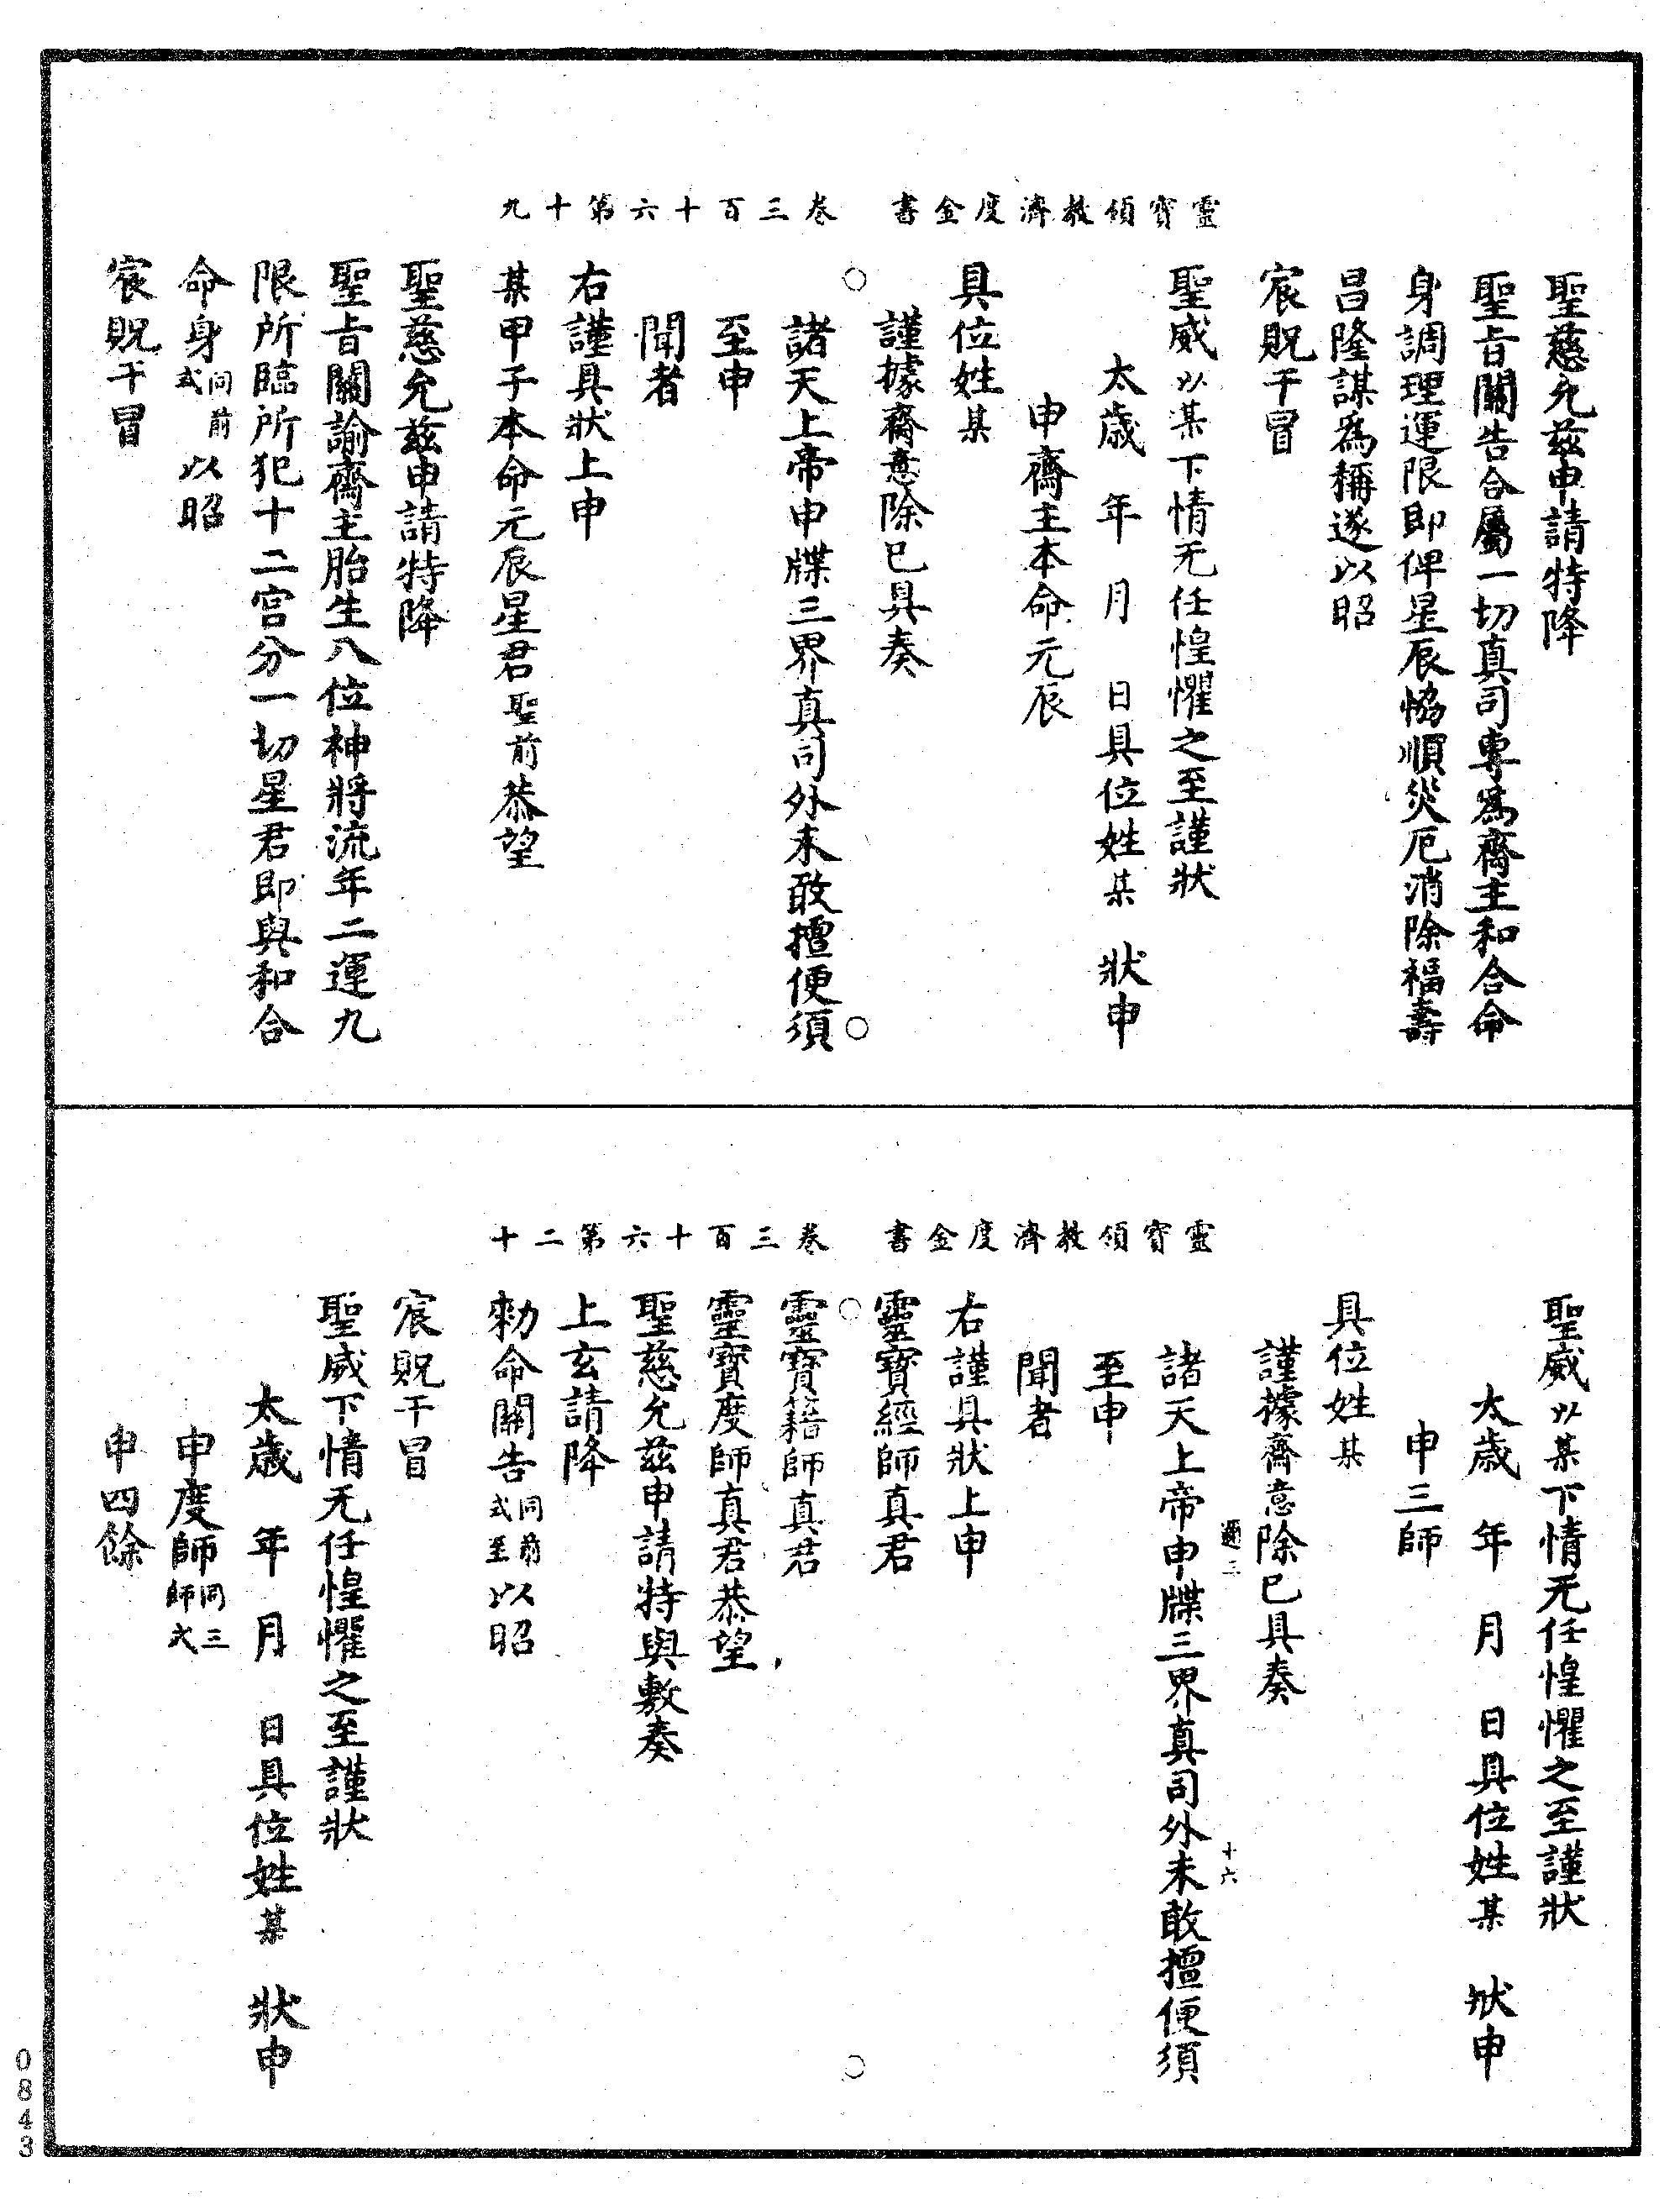 靈寶領教濟度金書 卷三百十六第十九
聖慈允兹申請特降
聖旨關告合屬一切真司專爲齋主和合命
身調理運限即俾星辰恊順災厄消除福壽
昌隆謀爲稱遂以昭
宸貺干冒
聖威以某下情无任惶懼之至謹狀
太歲 年 月 日具位姓某 狀申
申齋主本命元辰
具位姓某
謹據齋意除已具奏
諸天上帝申牒三界真司外未敢擅便須
至申
聞者
右謹具狀上申
某甲子本命元辰星君聖前恭望
聖慈允兹申請特降
聖旨關諭齋主胎生八位神將流年二運九
限所臨所犯十二宫分一切星君即與和合
命身同前式以昭
宸貺干冒
靈寶領教濟度金書 卷三百十六第二十
聖威以某下情无任惶懼之至謹狀
太歲 年 月 日具位姓某 狀申
申三師
具位姓某
謹據齋意除已具奏
諸天上帝申牒三界真司外未敢擅便須
至申
聞者
右謹具狀上申
靈寶經師真君
靈寶籍師真君
靈寶度師真君恭望
聖慈允兹申請特與敷奏
上玄請降
勑命關告同前式至以昭
宸貺干冒
聖威下情无任惶懼之至謹狀
太歲 年 月 日具位姓某 狀申
申度師同三師式
申四餘
三 十六
0843